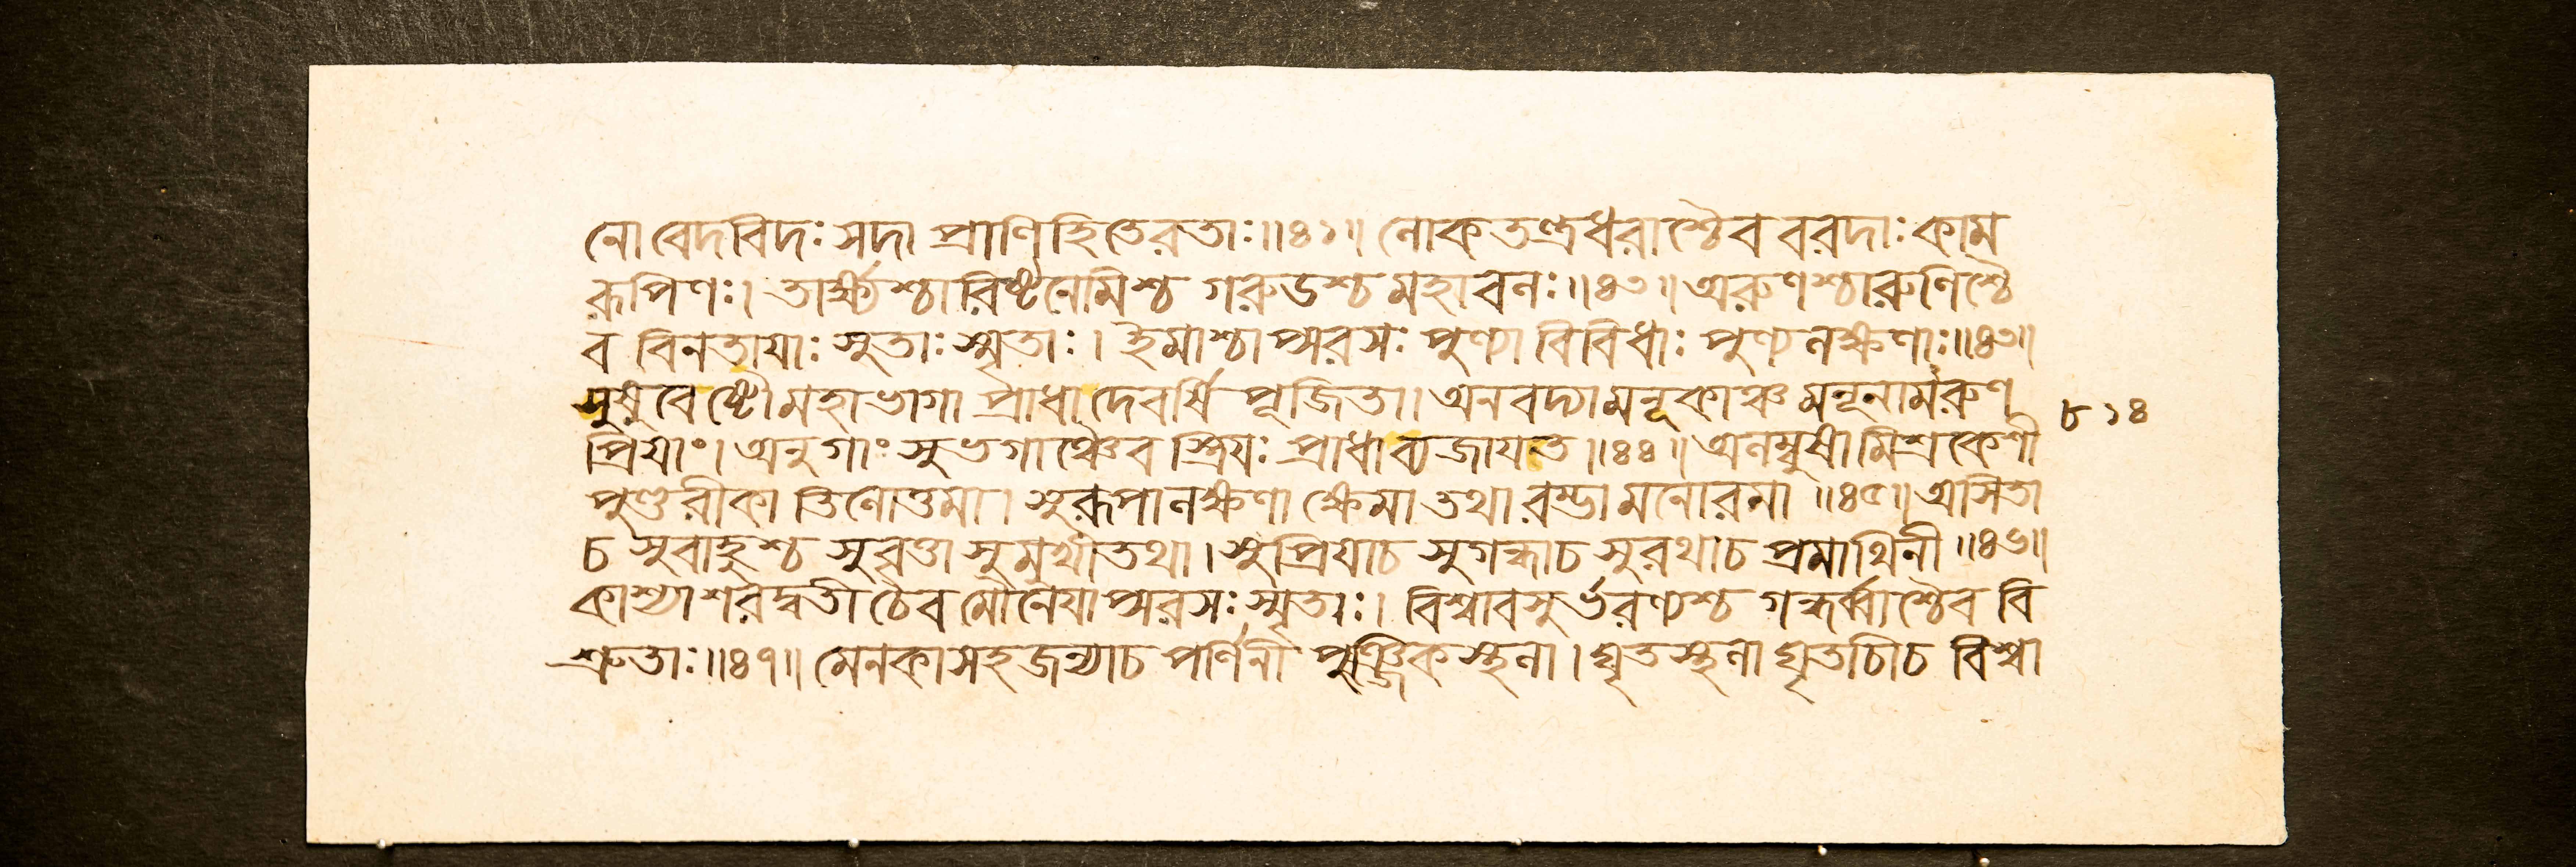 নো বেদবিদঃ সদা প্রাণিহিতেরতাঃ॥৪১॥ লোকতন্ত্রধরাশ্চৈব বরদাঃ কাম
রূপিণঃ। তার্ক্ষ্যশ্চারিষ্টনেমিশ্চ গরুডশ্চ মহাবলঃ॥৪২॥ অরুণশ্চারুণিশ্চৈ
ব বিনতাযাঃ সুতাঃ স্মৃতাঃ। ইমাশ্চাপ্সরসঃ পুণ্যা বিবিধাঃ পুণ্যলক্ষণাঃ॥৪৩॥
সুষুবেষ্টৌ মহাভাগা প্রাধা দেবর্ষি পূজিতা। অনবদ্যামনূকাঞ্চ মনূনামরুণ ৮১৪
প্রিযাং। অনুগাং সুভগাঞ্চৈব স্ত্রিযঃ প্রাধাব্যজাযত॥৪৪॥ অলম্বুষামিশ্রকেশী
পুণ্ডরীকা তিলোত্তমা। সুরূপালক্ষণা ক্ষেমা তথা রম্ভা মনোরমা॥৪৫॥ অসিতা
চ সুবাহুশ্চ সুব্রতা সুমুখীতথা। সুপ্রিযাচ সুগন্ধাচ সুরথাচ প্রমাথিনী॥৪৬॥
কাশ্যাশরদ্বতী চৈব মৌনেযাপ্সরসঃ স্মৃতাঃ। বিশ্বাবসুর্ভরণ্যশ্চ গন্ধর্ব্বাশ্চৈব বি
শ্রুতাঃ॥৪৭॥ মেনকাসহজন্যাচ পর্ণিনী পুঞ্জিকস্থলা। ঘৃতস্থলা ঘৃতাচীচ বিশ্বা